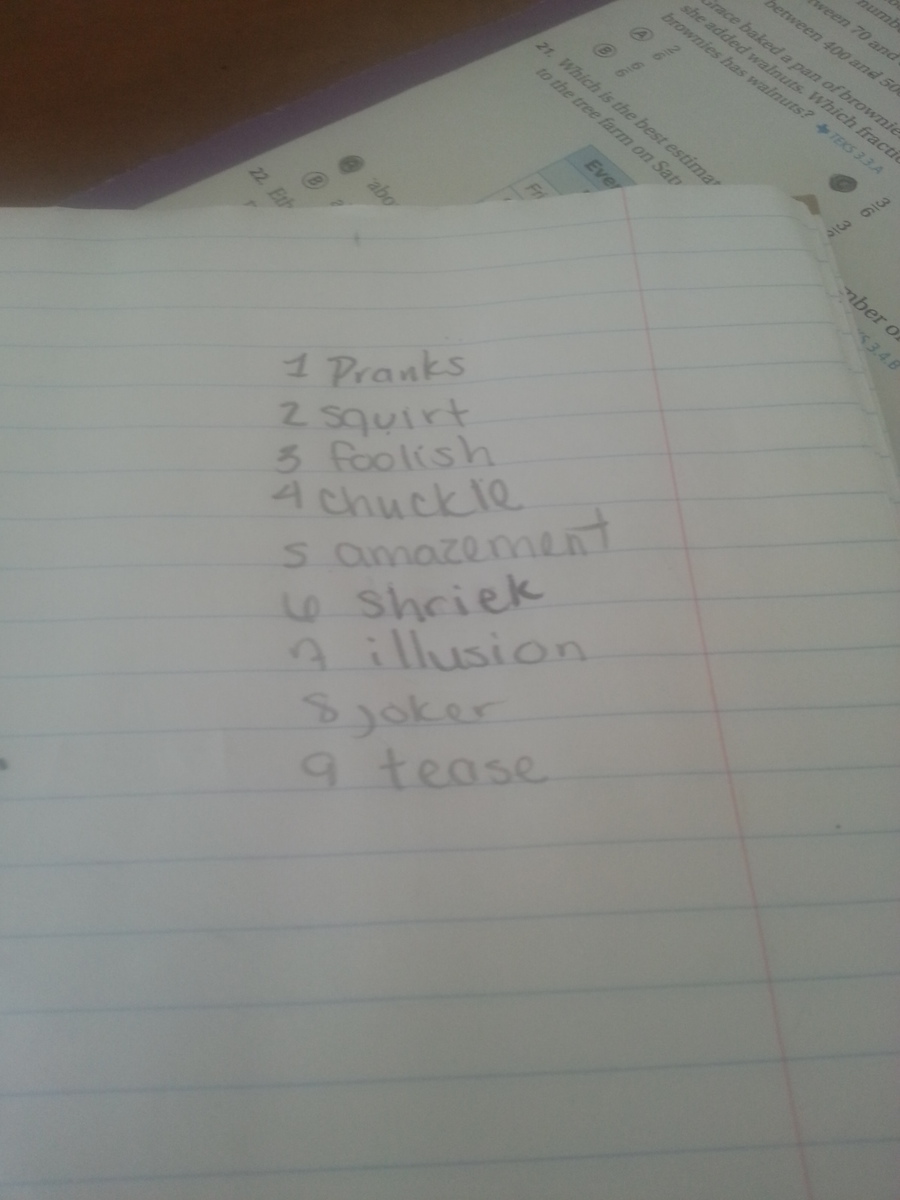 number
between 70 and
between 400 and 50
Grace baked a pan of brownie
she added walnuts. Which fracti
brownies has walnuts? TEKS 3.3.A
A 2/6
B 6/6
C 3/6
3
21. Which is the best estimat
to the tree farm on Satu
Even
Fr
22.
B
abo
mber o
3.4.B
1 Pranks
2 squirt
3 foolish
4 chuckle
5 amazement
6 shriek
7 illusion
8 joker
9 tease